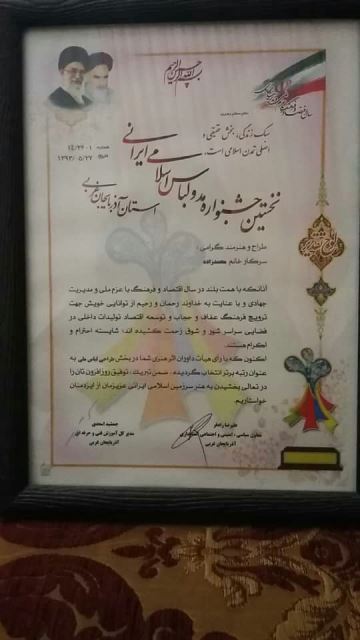 بسم الله الرحمن الرحیم
سبک زندگی، بخش حقیقی و
اصلی تمدن اسلامی است.
شماره ۱۴/۲۶۰۱
تاریخ ۱۳۹۳/۰۵/۲۷
نخستین جشنواره مد و لباس اسلامی ایرانی
استان آذربایجان غربی
طراح و هنرمند گرامی؛
سرکار خانم
آنانکه با همت بلند در سال اقتصاد و فرهنگ با عزم ملی و مدیریت
جهادی و با عنایت به خداوند رحمان و رحیم از توانایی خویش جهت
ترویج فرهنگ عفاف و حجاب و توسعه اقتصاد تولیدات داخلی در
فضایی سراسر شور و شوق زحمت کشیده اند، شایسته احترام و
اکرام هستند.
اکنون که با رای هیأت داوران اثر هنری شما در بخش طراحی لباس ملی به
عنوان رتبه برتر انتخاب گردیده، ضمن تبریک، توفیق روزافزون تان را
در تعالی بخشیدن به هنر سرزمین اسلامی ایرانی عزیزمان از ایزدمنان
خواستاریم.
علیرضا رادفر
معاون سیاسی، امنیتی و اجتماعی استانداری
آذربایجان غربی
جمشید اسعدی
مدیر کل آموزش فنی و حرفه ای
آذربایجان غربی